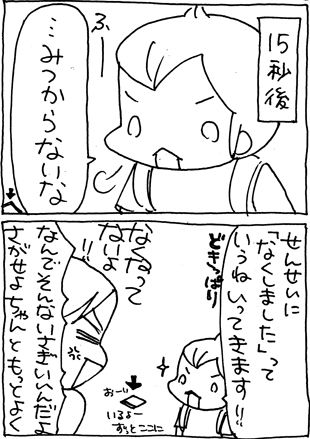 15秒後
ふーー
…みつからないな
せんせいに
「なくしました」って
いうねいってきます!!
どきっぱり
なくなって
ないよ
!!
なんでそんないさぎいいんだよ
さがせよちゃんともっとよく
おーい
いるよー
ずっとここに